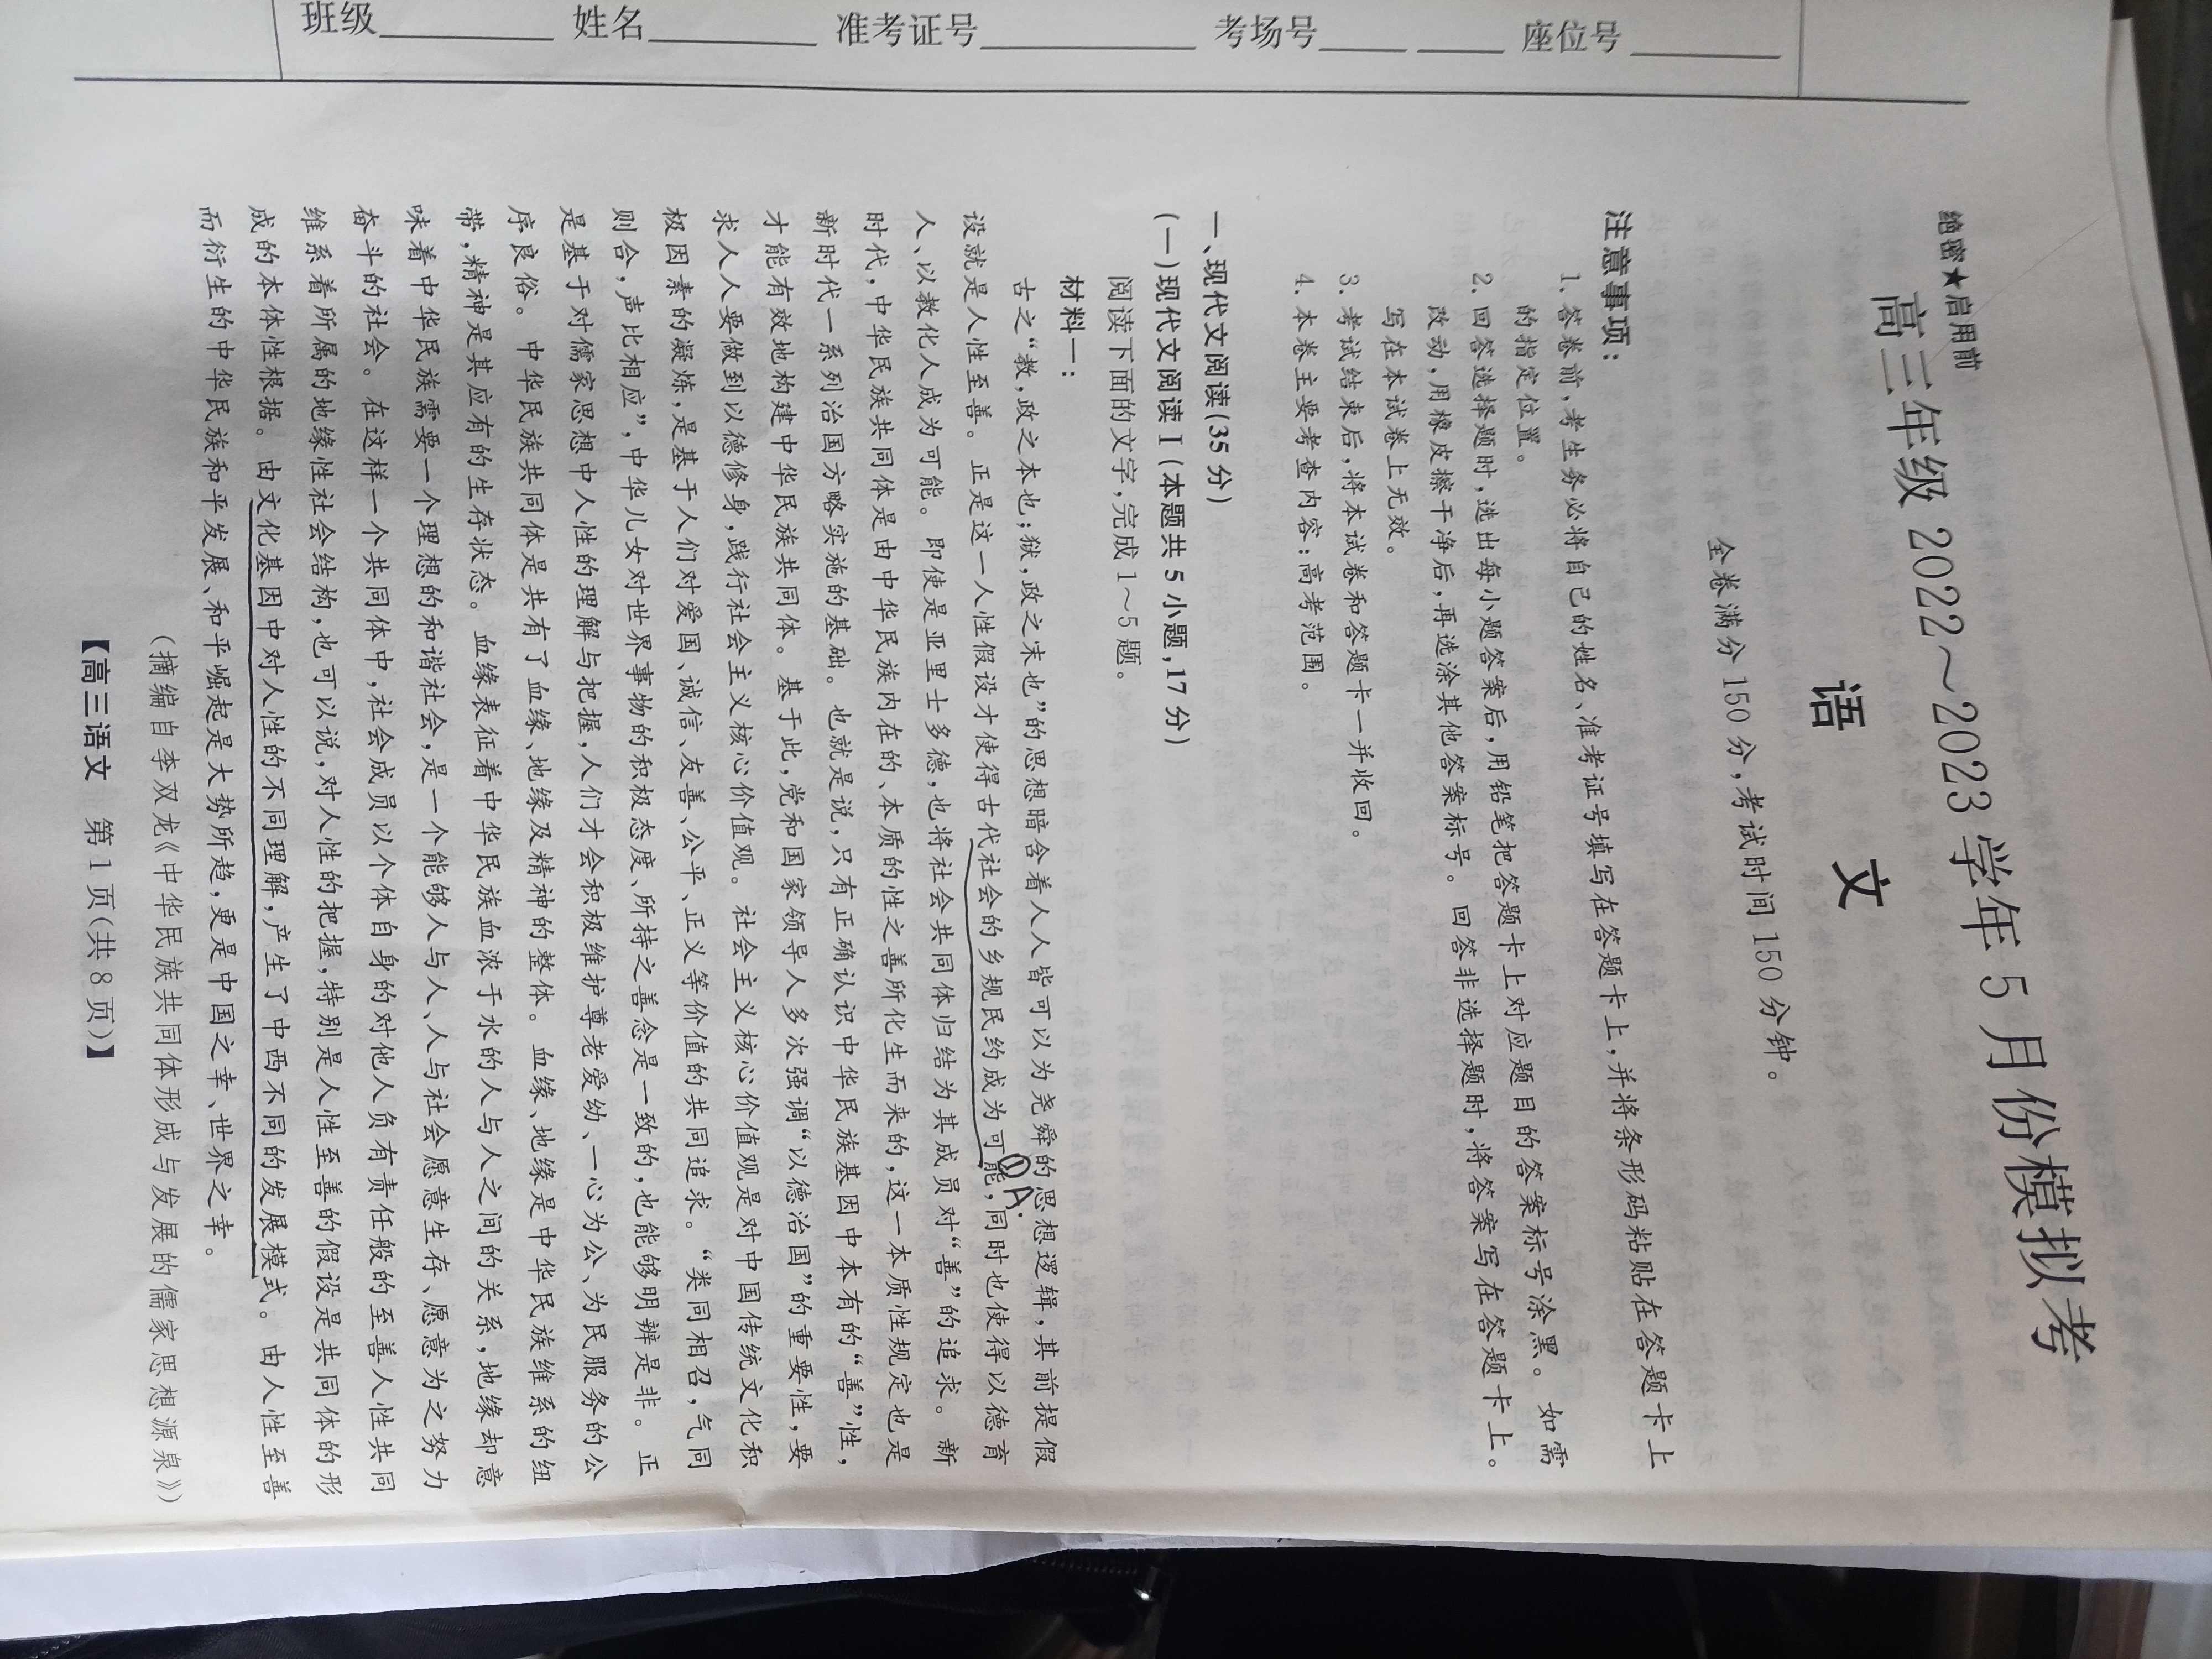 班级 姓名 准考证号 考场号 座位号
绝密★启用前
高三年级 2022～2023 学年 5 月份模拟考
语 文
全卷满分 150 分，考试时间 150 分钟。
注意事项：
1. 答卷前，考生务必将自己的姓名、准考证号填写在答题卡上，并将条形码粘贴在答题卡上
的指定位置。
2. 回答选择题时，选出每小题答案后，用铅笔把答题卡上对应题目的答案标号涂黑。如需
改动，用橡皮擦干净后，再选涂其他答案标号。回答非选择题时，将答案写在答题卡上。
写在本试卷上无效。
3. 考试结束后，将本试卷和答题卡一并收回。
4. 本卷主要考查内容：高考范围。
一、现代文阅读（35 分）
（一）现代文阅读 I（本题共 5 小题，17 分）
阅读下面的文字，完成 1～5 题。
材料一：
古之“教，政之本也；狱，政之末也”的思想暗含着人人皆可以为尧舜的思想逻辑，其前提假
设就是人性至善。正是这一人性假设才使得古代社会的乡规民约成为可能，同时也使得以德育
①A.
人、以教化人成为可能。即使是亚里士多德，也将社会共同体归结为其成员对“善”的追求。新
时代，中华民族共同体是由中华民族内在的、本质的性之善所化生而来的，这一本质性规定也是
新时代一系列治国方略实施的基础。也就是说，只有正确认识中华民族基因中本有的“善”性，
才能有效地构建中华民族共同体。基于此，党和国家领导人多次强调“以德治国”的重要性，要
求人人要做到以德修身，践行社会主义核心价值观。社会主义核心价值观是对中国传统文化积
极因素的凝炼，是基于人们对爱国、诚信、友善、公平、正义等价值的共同追求。“类同相召，气同
则合，声比相应”，中华儿女对世界事物的积极态度、所持之善念是一致的，也能够明辨是非。正
是基于对儒家思想中人性的理解与把握，人们才会积极维护尊老爱幼、一心为公、为民服务的公
序良俗。中华民族共同体是共有了血缘、地缘及精神的整体。血缘、地缘是中华民族维系的纽
带，精神是其应有的生存状态。血缘表征着中华民族血浓于水的人与人之间的关系，地缘却意
味着中华民族需要一个理想的和谐社会，是一个能够人与人、人与社会愿意生存、愿意为之努力
奋斗的社会。在这样一个共同体中，社会成员以个体自身的对他人负有责任般的至善人性共同
维系着所属的地缘性社会结构，也可以说，对人性的把握，特别是人性至善的假设是共同体的形
成的本体性根据。由文化基因中对人性的不同理解，产生了中西不同的发展模式。由人性至善
而衍生的中华民族和平发展、和平崛起是大势所趋，更是中国之幸、世界之幸。
（摘编自李双龙《中华民族共同体形成与发展的儒家思想源泉》）
【高三语文 第 1 页（共 8 页）】